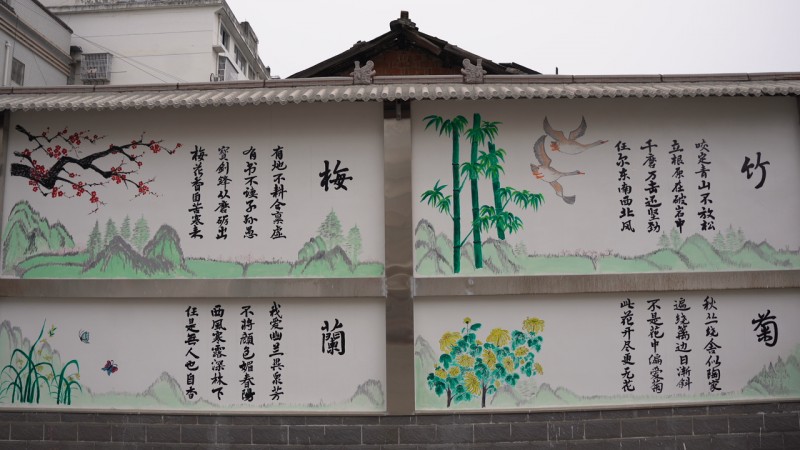 梅
有地不耕仓禀虚
有书不读子孙愚
宝剑锋从磨砺出
梅花香自苦寒来
竹
咬定青山不放松
立根原在破岩中
千磨万击还坚劲
任尔东南西北风
蘭
我爱幽兰异众芳
不将颜色媚春阳
西风寒露深林下
任是无人也自香
菊
秋丛绕舍似陶家
遍绕篱边日渐斜
不是花中偏爱菊
此花开尽更无花